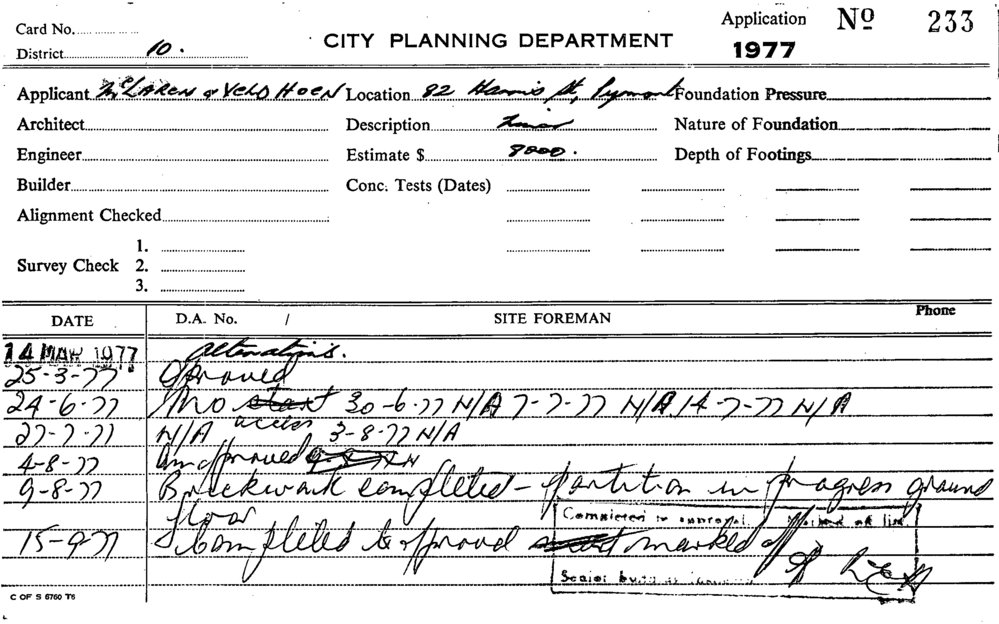 Card No.
District 10.
CITY PLANNING DEPARTMENT
Application Nº 233
1977
Applicant McLAREN & VELDHOEN Location 82 Harris St, Pyrmont Foundation Pressure
Architect Description Minor Nature of Foundation
Engineer Estimate $ 8000. Depth of Footings
Builder Conc. Tests (Dates)
Alignment Checked
1.
Survey Check 2.
3.
DATE D.A. No. / SITE FOREMAN Phone
14 MAR 1977 Alterations.
25-3-77 Approved
24-6-77 No start 30-6-77 N/A 7-7-77 N/A 14-7-77 N/A
access
27-7-77 N/A 3-8-77 N/A
4-8-77
9-8-77 Brickwork completed - partition in progress ground
floor
Completed to approval. marked off list
15-9-77 Completed to approval marked off
Senior
C OF S 6760 T6